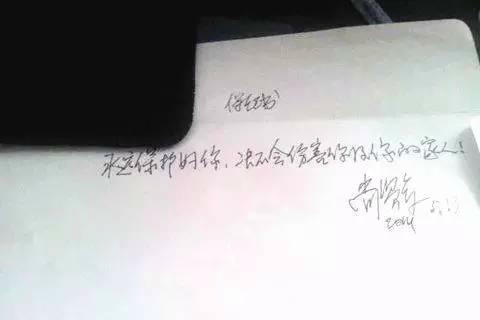 保证书
永远保护时你，决不会伤害你及你的家人！
2014 5.13